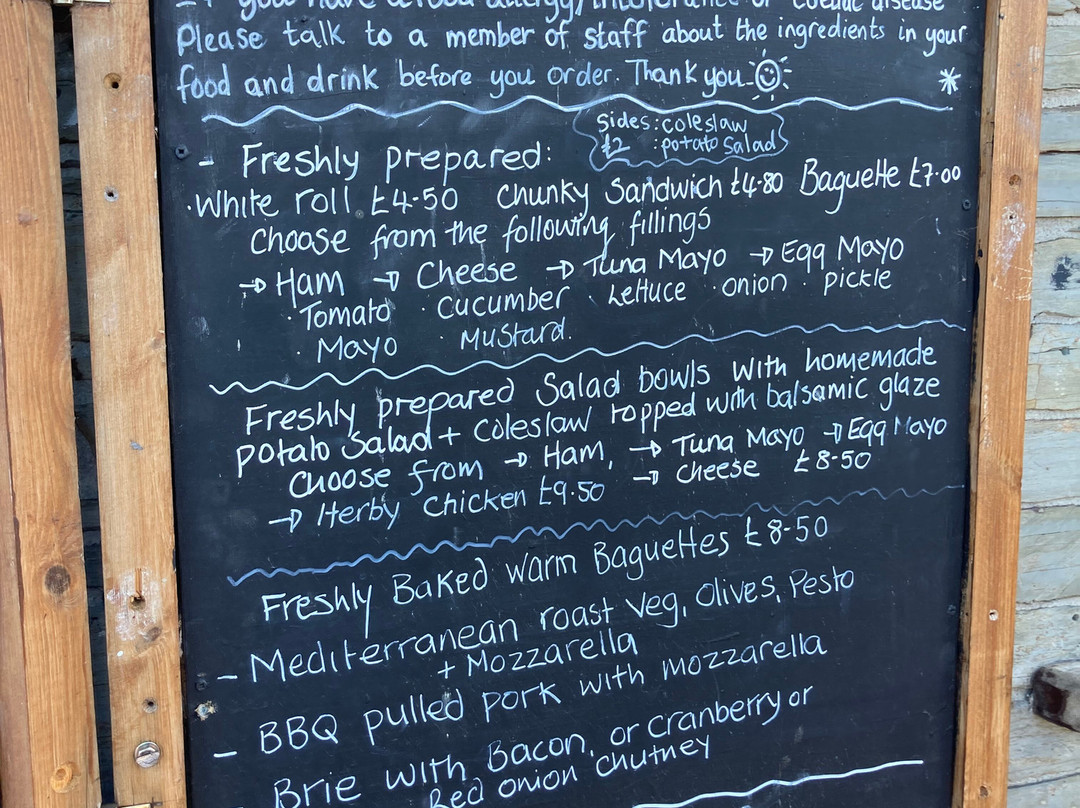 you have a food allergy/intolerance or coeliac disease
Please talk to a member of staff about the ingredients in your
food and drink before you order. Thank you
Sides: coleslaw
£2 : potato Salad
- Freshly prepared:
· White roll £4-50 Chunky Sandwich £4-80 Baguette £7·00
Choose from the following fillings
→ Ham → Cheese → Tuna Mayo → Egg Mayo
· Tomato · Cucumber · Lettuce · onion · pickle
· Mayo · Mustard.
Freshly prepared Salad bowls with homemade
potato Salad + coleslaw topped with balsamic glaze
Choose from → Ham, → Tuna Mayo → Egg Mayo
→ Herby Chicken £9.50 → Cheese £8-50
Freshly Baked warm Baguettes £8-50
- Mediterranean roast veg, Olives, Pesto
+ Mozzarella
- BBQ pulled pork with mozzarella
- Brie with Bacon, or cranberry or
Red onion chutney